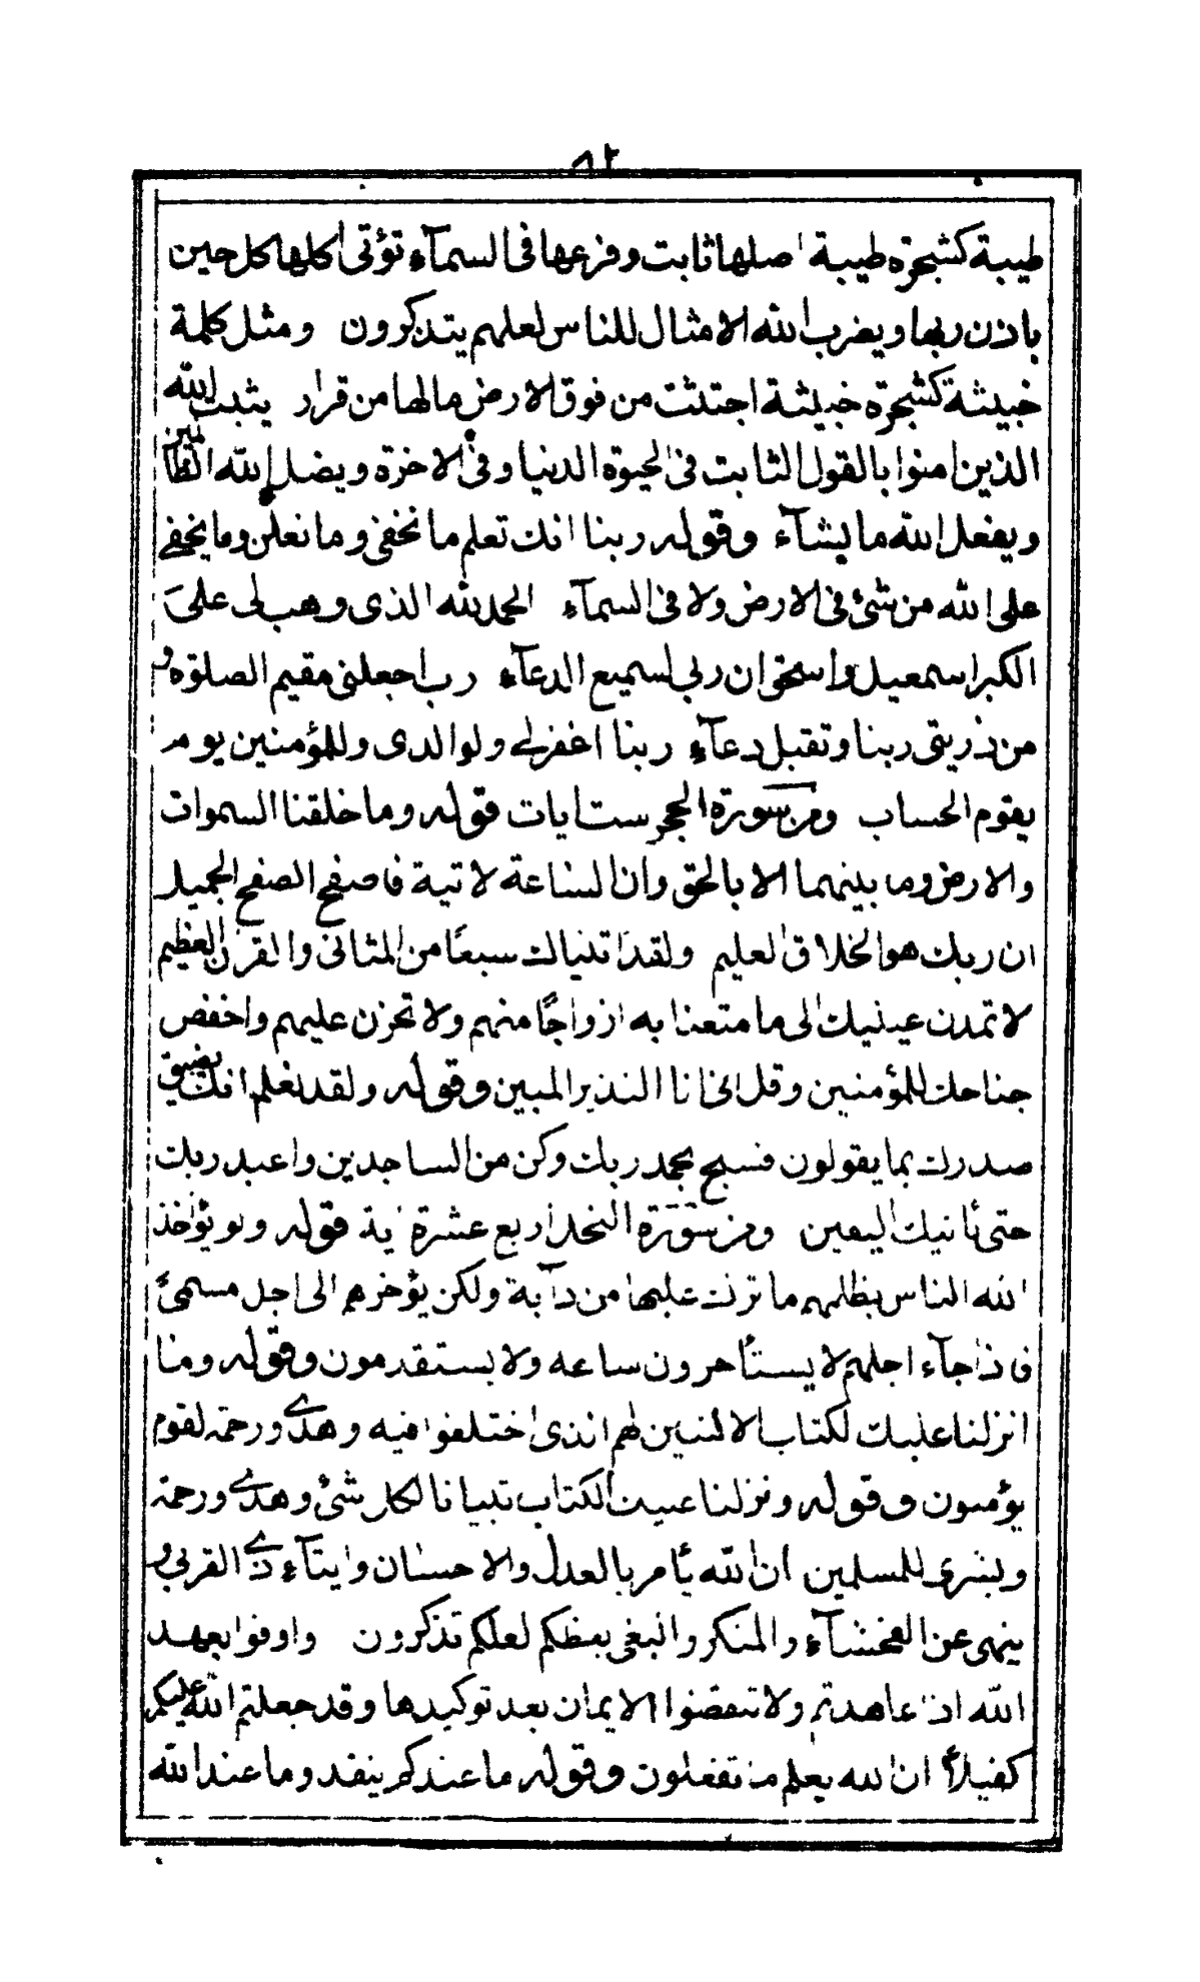 ٨٢
طيبة كشجرة طيبة اصلها ثابت وفرعها فى السمآء تؤتى اكلها كل حين
باذن ربها ويضرب الله الامثال للناس لعلهم يتذكرون ومثل كلمة
خبيثة كشجرة خبيثة اجتثت من فوق الارض مالها من قرار يثبت الله
الذين امنوا بالقول الثابت فى الحيوة الدنيا وفى الاخرة ويضل الله الظالمين
ويفعل الله ما يشآء وقوله ربنا انك تعلم ما نخفى وما نعلن وما يخفى
على الله من شئ فى الارض ولا فى السمآء الحمد لله الذى وهب لى على
الكبر اسمعيل واسحق ان ربى لسميع الدعآء رب اجعلنى مقيم الصلوة و
من ذريتى ربنا وتقبل دعآء ربنا اغفر لى ولوالدى وللمؤمنين يوم
يقوم الحساب ومن سورة الحجر ست ايات قوله وما خلقنا السموات
والارض وما بينهما الا بالحق وان الساعة لاتية فاصفح الصفح الجميل
ان ربك هو الخلاق العليم ولقد اتيناك سبعًا من المثانى والقرن العظيم
لا تمدن عينيك الى ما متعنا به ازواجًا منهم ولا تحزن عليهم واخفض
جناحك للمؤمنين وقل انى انا النذير المبين وقوله ولقد نعلم انك يضيق
صدرك بما يقولون فسبح بحمد ربك وكن من الساجدين واعبد ربك
حتى يأتيك اليقين ومن سورة النحل اربع عشرة اية قوله ولو يؤاخذ
الله الناس بظلمهم ما ترك عليها من دآبة ولكن يؤخرهم الى اجل مسمى
فاذا جآء اجلهم لا يستأخرون ساعة ولا يستقدمون وقوله وما
انزلنا عليك الكتاب الا لتبين لهم الذى اختلفوا فيه وهدى ورحمة لقوم
يؤمنون وقوله ونزلنا عليك الكتاب تبيانا لكل شئ وهدى ورحمة
وبشرى للمسلمين ان الله يأمر بالعدل والاحسان وايتآء ذى القربى و
ينهى عن الفحشآء والمنكر والبغى يعظكم لعلكم تذكرون واوفوا بعهد
الله اذا عاهدتم ولا تنقضوا الايمان بعد توكيدها وقد جعلتم الله عليكم
كفيلاً ان الله يعلم ما تفعلون وقوله ما عندكم ينفد وما عند الله